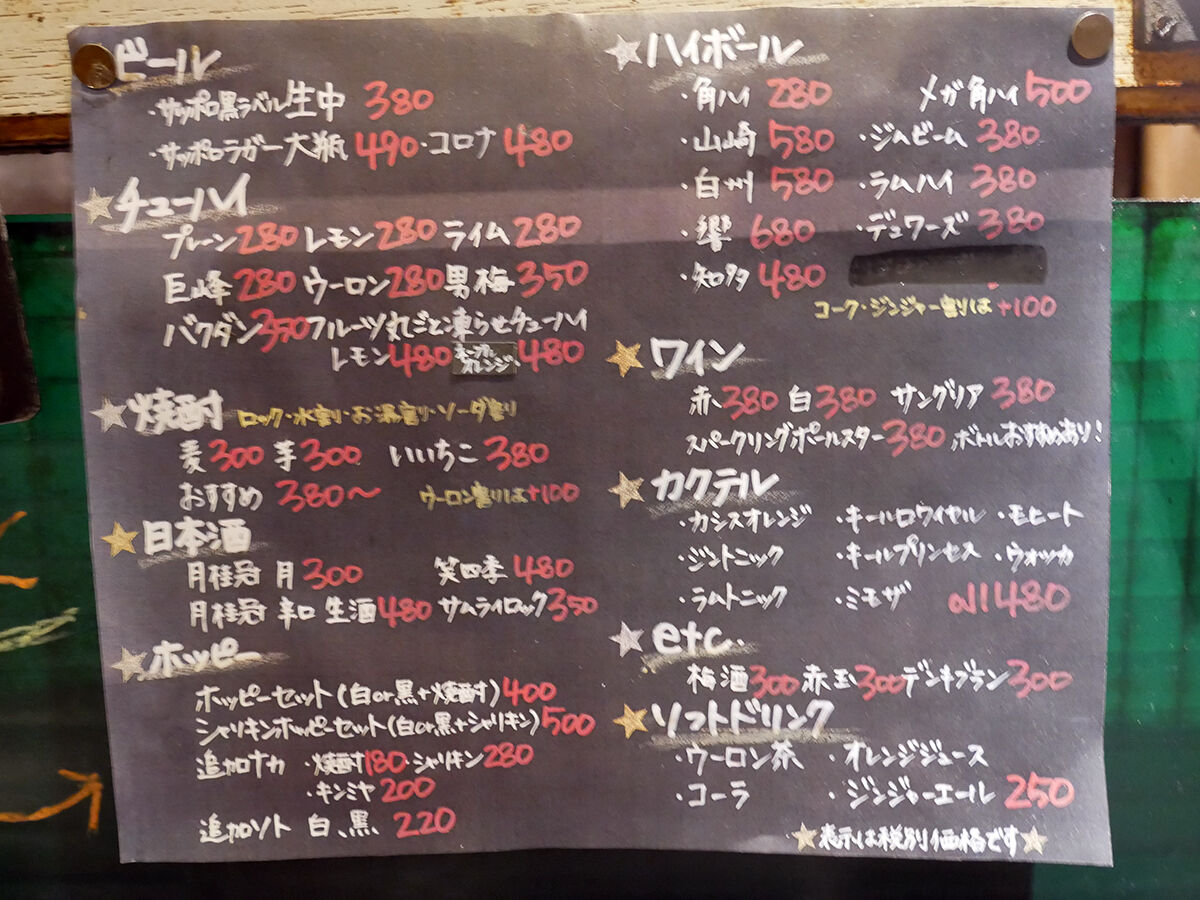 ビール
・サッポロ黒ラベル生中 380
・サッポロラガー大瓶 490 ・コロナ 480
★チューハイ
プレーン280 レモン280 ライム280
巨峰280 ウーロン280 男梅350
バクダン350 フルーツ丸ごと凍らせチューハイ
レモン480 ネーブルオレンジ480
★焼酎 ロック・水割・お湯割り・ソーダ割り
麦300 芋300 いいちこ380
おすすめ 380〜 ウーロン割りは+100
★日本酒
月桂冠 月300 笑四季480
月桂冠 辛口 生酒480 サムライロック350
★ホッピー
ホッピーセット(白or黒+焼酎)400
シャリキンホッピーセット(白or黒+シャリキン)500
追加ナカ ・焼酎180 ・シャリキン280
・キンミヤ200
追加ソト 白、黒 220
★ハイボール
・角ハイ 280 メガ角ハイ500
・山崎 580 ・ジムビーム380
・白州 580 ・ラムハイ 380
・響 680 ・デュワーズ380
・知多 480
コーク・ジンジャー割りは+100
★ワイン
赤380 白380 サングリア380
スパークリングポールスター380 ボトルおすすめあり!
★カクテル
・カシスオレンジ ・キールロワイヤル ・モヒート
・ジントニック ・キールプリンセス ・ウォッカ
・ラムトニック ・ミモザ all480
★etc.
梅酒300 赤玉300 デンキブラン300
★ソフトドリンク
・ウーロン茶 ・オレンジジュース
・コーラ ・ジンジャーエール 250
★表示は税別価格です★